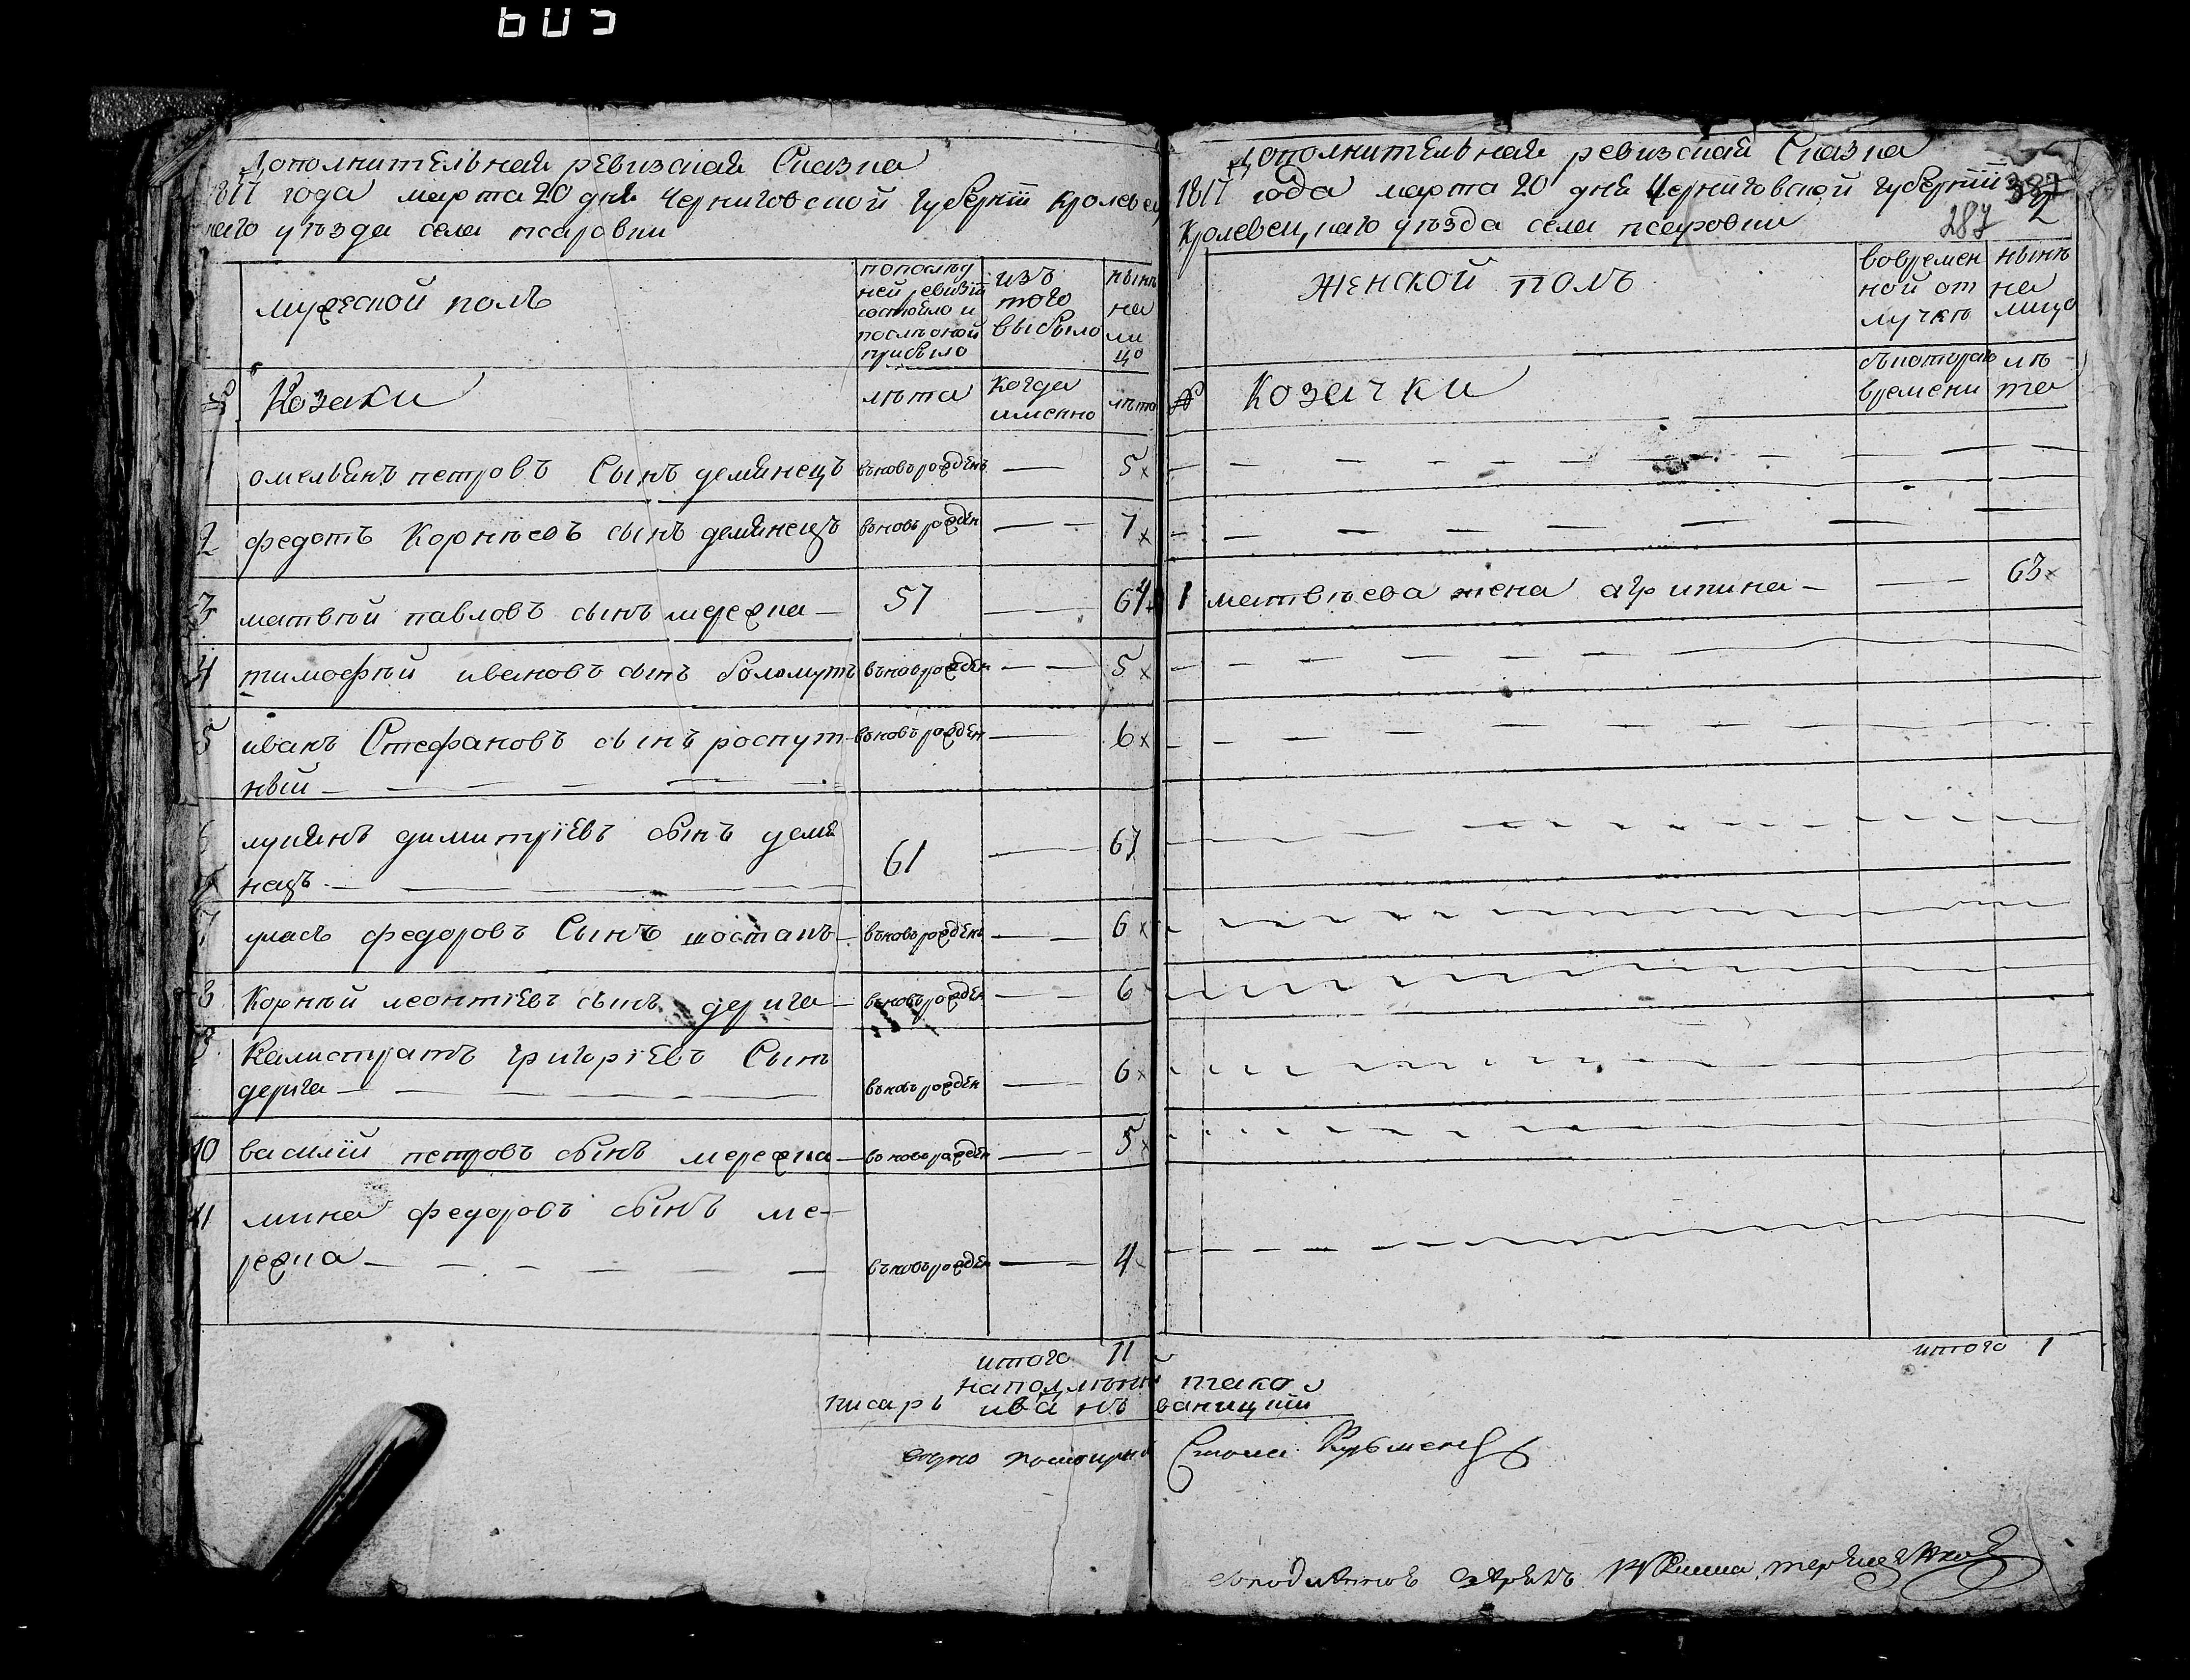 605
Дополнительная ревизская Сказка
1817 года марта 20 дня Черниговской губернїи кролевец
каго уъзда села псаровки
мужеской полъ
по послѣд
ней ревизїи
состояло и
послѣ оной
прибыло
изъ
того
выбыло
нынѣ
на
ли
цо
№
Козаки
лѣта
когда
именно
лѣта
1 омельянъ петровъ Сынъ демянецъ вьновь рожденъ — 5
2 федотъ Корнѣевъ сынъ демянецъ вьновь рожден — 7
3 матвѣй павловъ сынъ мережка — 57 — 64
4 тимофѣй ивановъ сынъ баламутъ вьновь рожден — 5
5 иванъ Стефановъ сынъ роспут вьновь рожден — 6
ный
6 лукянъ димитрїевъ сынъ демя 61 — 67
нецъ
7 уласъ федоровъ Сынъ шостакъ вьновь рожденъ — 6
8 Корнѣй леонтїевъ сынъ дерига вьновь рожден — 6
9 Калистратъ григорїевъ Сынъ
дерига вьновь рожден — 6
10 василїй петровъ сынъ мережка во новь рожден — 5
11 мина федоровъ сынъ ме-
режка вьновь рожден — 4
итого 11
Дополнительная ревизская Сказка
1817 года марта 20 дня Черниговской губернїи
387
287 2
Кролевецкаго уѣзда села псаровки
женской полъ
вовремен
ной от
лучкѣ
нынѣ
на
лицо
№
Козачки
съкотораго
времени
лѣ
та
1 матвѣева жена агрипина — 63
итого 1
писарь иванъ